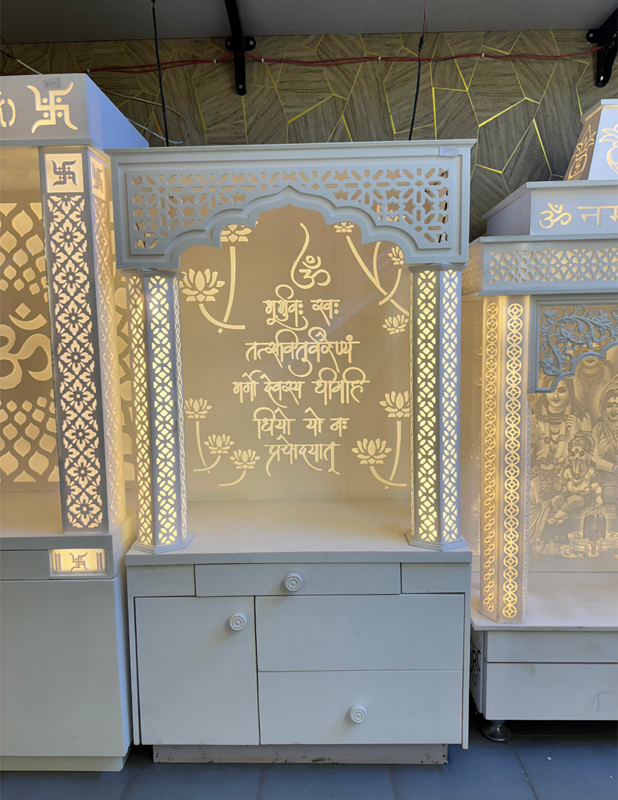 ॐ
ॐ
भूर्भुवः स्वः
तत्सवितुर्वरेण्यं
भर्गो देवस्य धीमहि
धियो यो नः
प्रचोदयात्
ॐ नम